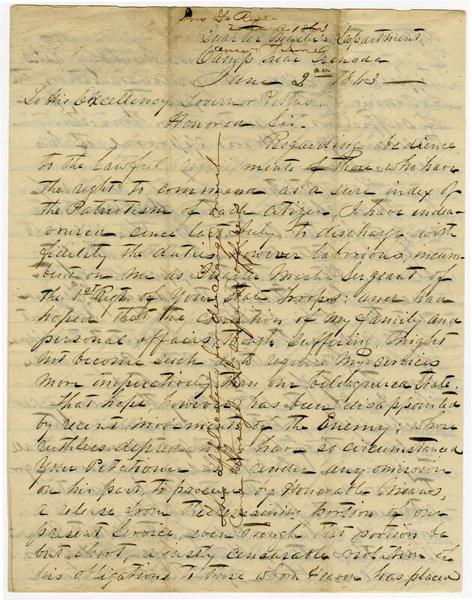 Quarter Master's Department
Camp near Grenada
June 2nd 1863
To His Excellency Governor Pettus
Honored Sir.
Regarding obedience
to the lawful requirements of those who have
the right to command as a sure index of
the Patriotism of each citizen, I have endea-
voured, since last July to discharge with
fidelity the duties, however laborious, incum-
bent on me as Quarter Mast. Sergeant of
the 1st Regt. of Your State Troops; and had
hoped that the condition of my family and
personal affairs, though suffering, might
not become such as to require my services
more imperatively than our beleaguered State.
That hope, however, has been disappointed
by recent movements of the Enemy; whose
ruthless depredations have so circumstanced
Your Petitioner as to render any omission
on his part to procure by Honorable Means,
a release from the remaining portion of our
present service, even though that portion be
but short, a justly censurable violation of
his obligations to those whom Heaven has placed
application for discharge